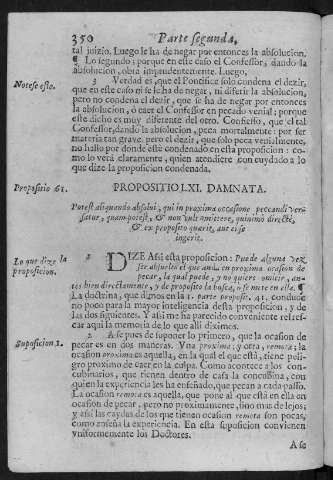 350 Parte segunda,
tal juizio. Luego le ha de negar por entonces la absolucion.
¶ Lo segundo; porque en este caso el Confessor, dando la
absolucion, obra imprudentemente. Luego.
Notese esto.
3 Verdad es, que el Pontifice solo condena el dezir,
que en este caso ni se le ha de negar, ni diferir la absolucion,
pero no condena el dezir, que se ha de negar por entonces
la absolucion, ò caer el Confessor en pecado venial; porque
este dicho es muy diferente del otro. Confiesso, que el tal
Confessor, dando la absolucion, peca mortalmente: por ser
materia tan grave. pero el dezir, que solo peca venialmente,
no hallo por donde este condenado en esta proposicion: co-
mo lo verà claramente, quien atendiere con cuydado a lo
que dize la proposicion condenada.
Propositio 61.
PROPOSITIO LXI. DAMNATA.
Potest aliquando absolui, qui in proxima occasione peccandi ver-
satur, quam potest, & non vult omittere, quinimò directè,
& ex proposito quærit, aut ei se
ingerit.
Lo que dize la
proposicion.
DIZE Assi esta proposicion: Puede alguna vez
ser absuelto el que está en proxima ocasion de
pecar, la qual puede, y no quiere omitir, an-
tes bien directamente, y de proposito la busca, ò se mete en ella. ¶
La doctrina, que dimos en la 1. parte proposit. 41. conduce
no poco para la mayor inteligencia desta proposicion, y de
las dos siguientes. Y assi me ha parecido conveniente refres-
car aqui la memoria de lo que alli diximos.
Suposicion 1.
2 Assi pues de suponer lo primero, que la ocasion de
pecar es en dos maneras. Yna proxima; y otra, remota; la
ocasion proxima es aquella, en la qual el que està, tiene peli-
gro proximo de caer en la culpa. Como acontece a los con-
cubinarios, que tienen dentro de casa la concubina, con
quien la experiencia les ha enseñado, que pecan a cada passo.
La ocasion remota es aquella, que pone al que està en ella en
ocasion de pecar, pero no proximamente, sino mas de lejos;
y assi las caydas de los que tienen ocasion remota son pocas,
como enseña la experiencia. En esta suposicion convienen
vniformemente los Doctores.
A se